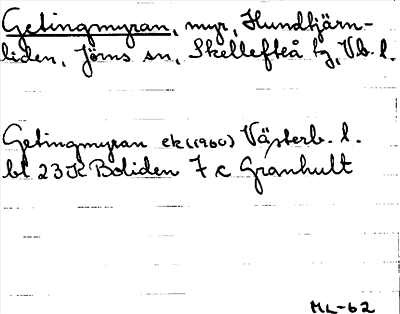 Getingmyran, myr, Hundtjärn-
liden, Jörns sn, Skellefteå tg, Vb. l.
Getingmyran ek (1960) Västerb. l.
bl 23 K Boliden 7 c Granhult
ML-62